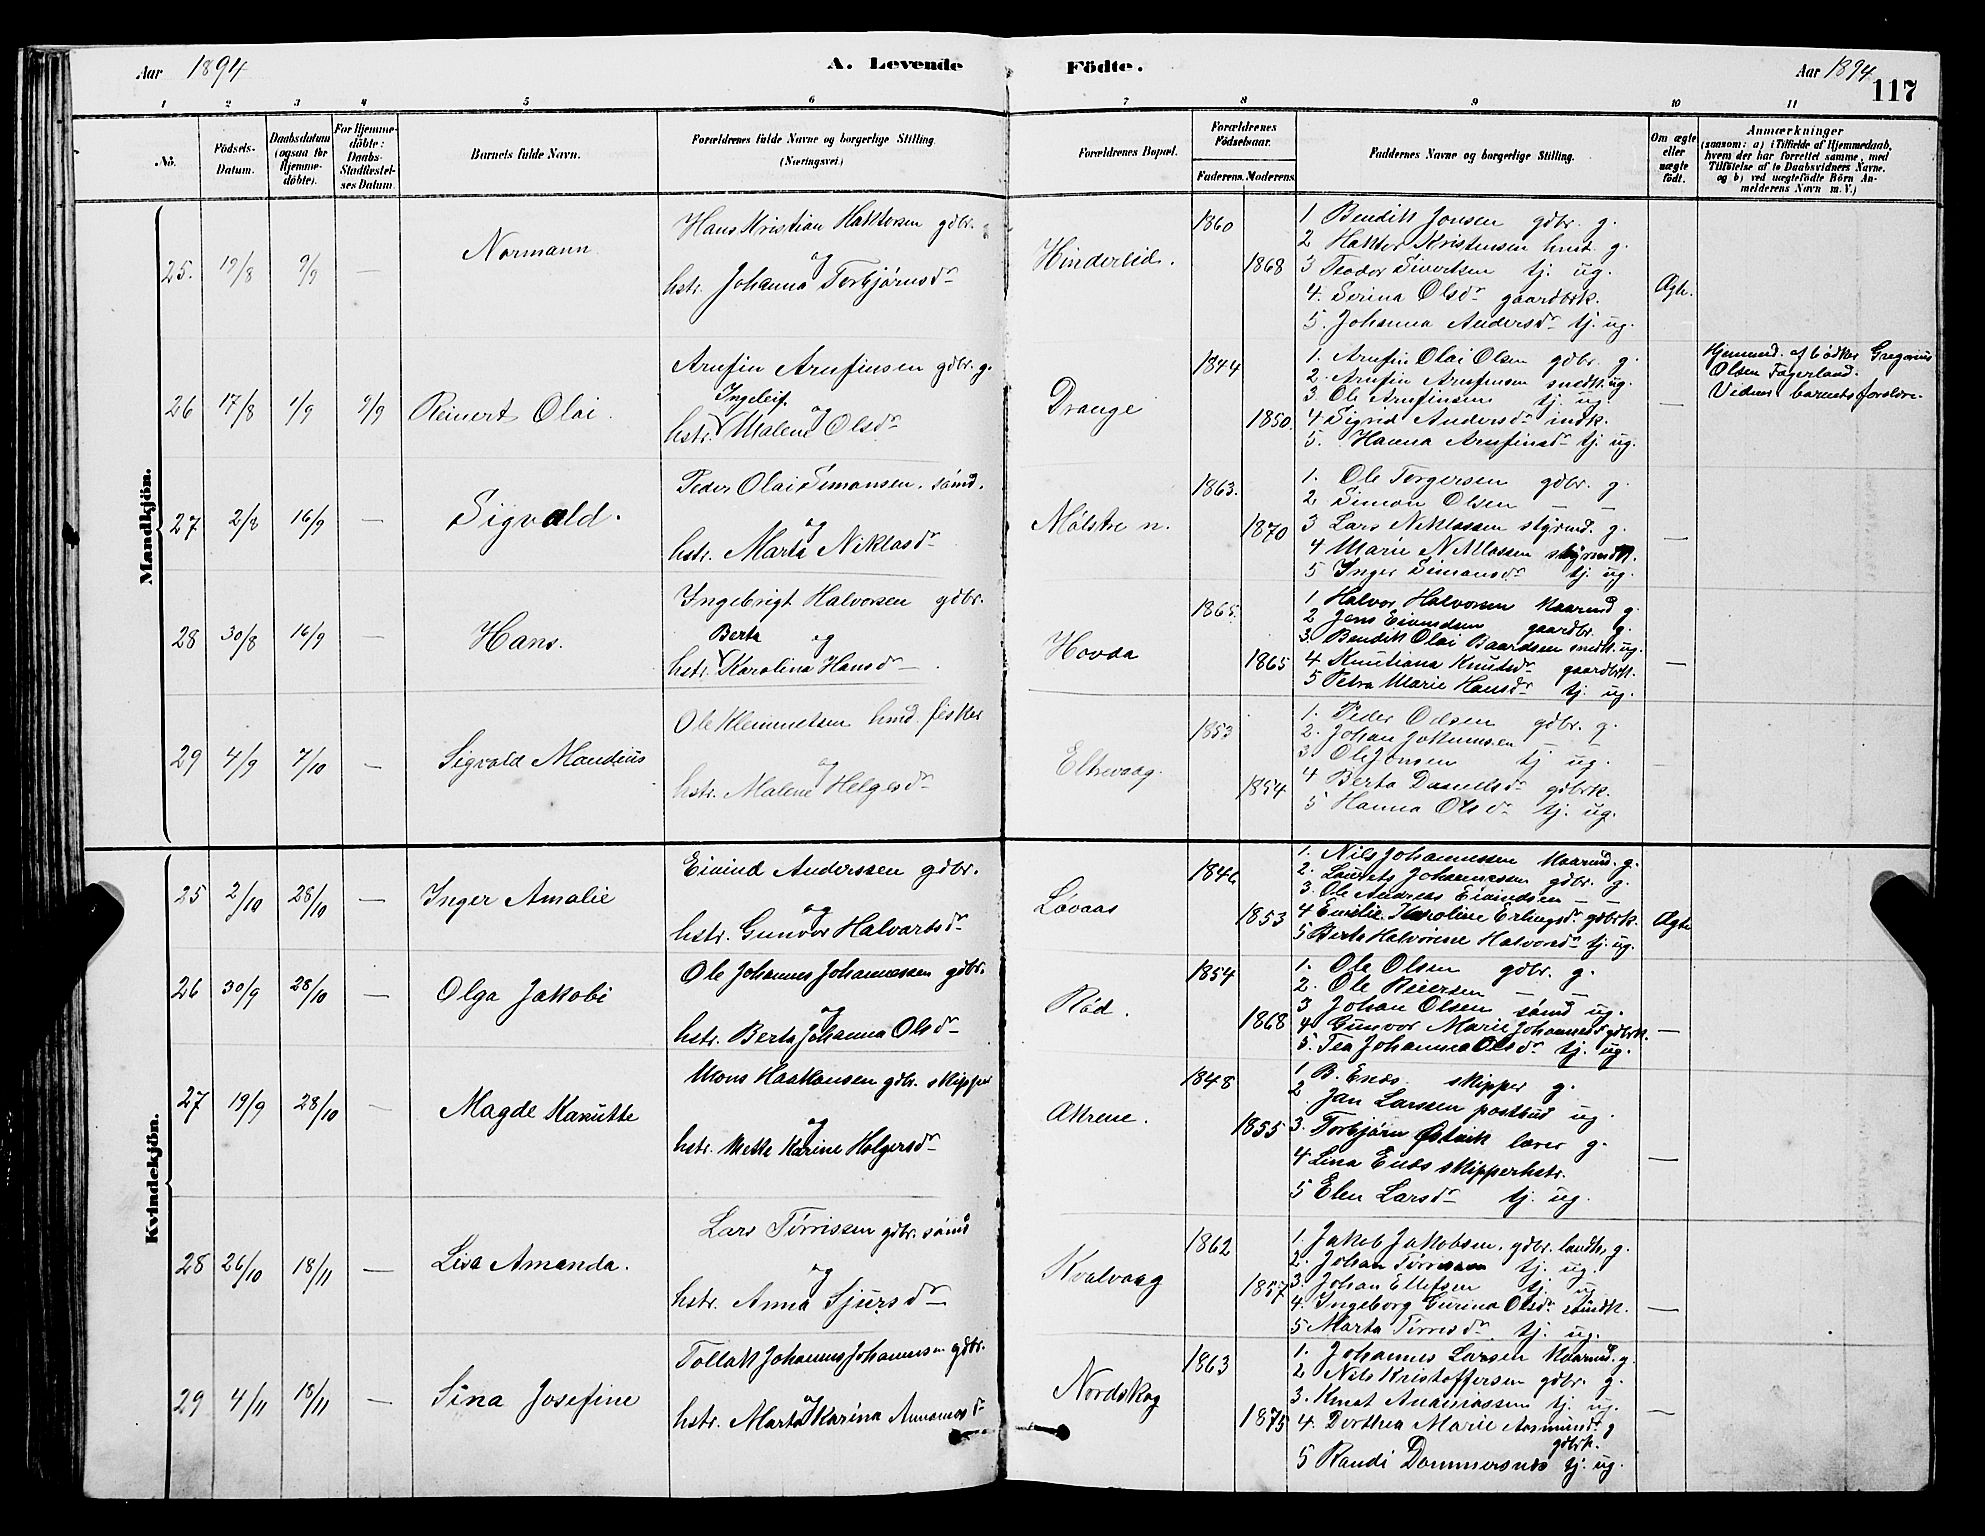 Aar 1894
A. Levende Födte.
Aar 1894
117
1 2 3 4 5 6 7 8 9 10 11
No.
Födsels-Datum.
Daabsdatum (ogsaa for Hjemme-döbte).
For Hjemme-döbte: Daabs-Stadfæstel-ses Datum.
Barnets fulde Navn.
Forældrenes fulde Navne og borgerlige Stilling (Næringsvei)
Forældrenes Bopæl.
Forældrenes Födselsaar.
Faderens. Moderens.
Faddernes Navne og borgerlige Stilling.
Om ægte eller uægte födt.
Anmærkninger
(saasom: a) i Tilfælde af Hjemmedaab, hvem der har forrettet samme, med Tilföielse af to Daabsvidners Navne, og b) ved uægtefödte Börn Anmelderens Navn m. V.)
Mandkjön.
25. 19/8 9/9 — Normann.
Hans Kristian Haktorsen gdbr.
og
hstr. Johanna Torbjörnsdr
Hinderlid.
1860
1868
1 Bendik Jonsen gdbr. g.
2 Haktor Kristensen g.
3 Teodor Sivertsen tj. ug.
4. Serina Olsdr gaardbrk.
5. Johanna Andersdr tj. ug.
Ægte.
26 17/8 1/9 9/9 Reinert Olai.
Arnfin Arnfinsen gdbr. g.
Ingeleif
og
hstr. Malene Olsdr
Drange
1844
1850.
1. Arnfin Olai Olsen gdbr. g.
2. Arnfin Arnfinsen smedk. ug.
3. Ole Arnfinsen tj. ug
4 Sigrid Andersdr indk.
5. Hanna Arnfinsdr tj. ug.
—
Hjemmed. af bödker Gregorius
Olsen Fagerland.
Vidner barnets forældre.
27 2/8 16/9 — Sigvald.
Peder Olai Simonsen. sömd.
og
hstr. Marta Niklasdr
Mölstre n.
1863.
1870
1. Ole Torgersen gdbr. g.
2. Simon Olsen — —
3 Lars Niklassen styrmd. g.
4 Marie Niklassen styrmdk.
5 Inger Simonsdr tj. ug.
—
28 30/8 16/9 — Hans.
Ingebrigt Halvorsen gdbr.
Berta
og
hstr. Karolina Hansdr
Hovda
1865.
1865
1 Halvor Halvorsen kaarmd g.
2 Jens Eivindsen gaardbr. g.
3. Bendik Olai Baardsen smedk. ug.
4 Knutiana Knutsdr gaardbrk.
5 Petra Marie Hansdr tj. ug.
—
29 4/9 7/10 — Sigvald Mandius
Ole Klemmetsen hmd. fisker
og
hstr. Malene Helgesdr
Eltrevaag.
1853
1854
1. Peder Odsen gdbr. g.
2. Johan Johannsen — —
3. Ole Jonsen tj ug.
4 Berta Danielsdr gdbrk.
5 Hanna Olsdr tj. ug.
—
Kvindekjön.
25 2/10 28/10 — Inger Amalie
Eivind Anderssen gdbr.
og
hstr. Gunvor Halvorsdr
Lövaas
1846
1853
1. Nils Johannessen kaarmd. g.
2. Laurits Johannessen gdbr. g.
3. Ole Andreas Eivindsen — —
4 Emilie Karoline Erlingsdr gdbrk.
5 Berta Halvorine Halvorsdr tj. ug.
Ægte
26 30/9 28/10 — Olga Jakobe
Ole Johannes Johannessen gdbr.
og
hstr. Berta Johanna Olsdr
Röd.
1854
1868
1. Ole Olsen gdbr. g.
2. Ole Reiersen — —
3 Johan Olsen sömd ug.
4 Gunvor Marie Johannesdr gdbrk.
5. Tea Johanna Olsdr tj. ug.
—
27 19/9 28/10 — Magde Kanutte
Mons Haakonsen gdbr. skipper
og
hstr. Mette Karine Holgersdr
Akrene.
1848
1855
1 B. Enæs. skipper g.
2 Jan Larssen postbud ug.
3. Torbjörn Östvik lærer g.
4 Lina Enæs skipperhstr.
5 Elen Larsdr tj. ug.
—
28 26/10 18/11 — Lisa Amanda.
Lars Törrissen gdbr. sömd
og
hstr. Anna Sjursdr
Kvalvaag
1862
1857
1. Jakob Jakobsen. gdbr. landh. g.
2. Johan Törrissen tj. ug.
3. Johan Ellefsen tj. ug
4. Ingeborg Gurina Olsdr sömdk.
5 Marta Törresdr tj. ug.
—
29 4/11 18/11 — Sina Josefine
Tollak Johannes Johannesen gdbr.
og
hstr. Marta Karina
Nordskog
1863
1875
1. Johannes Larsen kaarmd. g.
2 Nils Kristoffersen gdbr. g.
3. Knut Ananiassen tj. ug.
4. Dorthea Marie Aasmundsdr g
gdbrk.
5 Randi Dommersnes tj. ug.
—